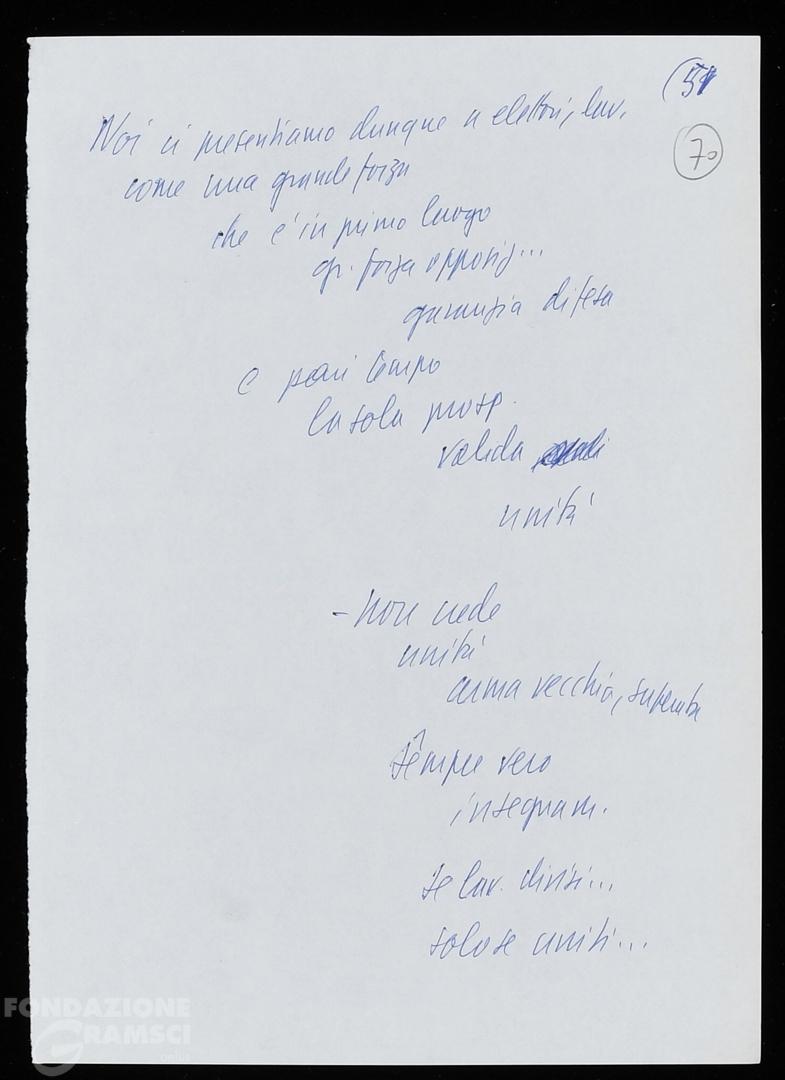 (51
70
Noi ci presentiamo dunque a elettori, lav.
come una grande forza
che è in primo luogo
gr. forza opposiz...
garanzia difesa
e pari tempo
la sola prosp.
valida
unità
- non crede
unità
arma vecchia, superata
sempre vero
insegnam.
se lav. divisi...
solo se uniti...
FONDAZIONE
GRAMSCI
onlus